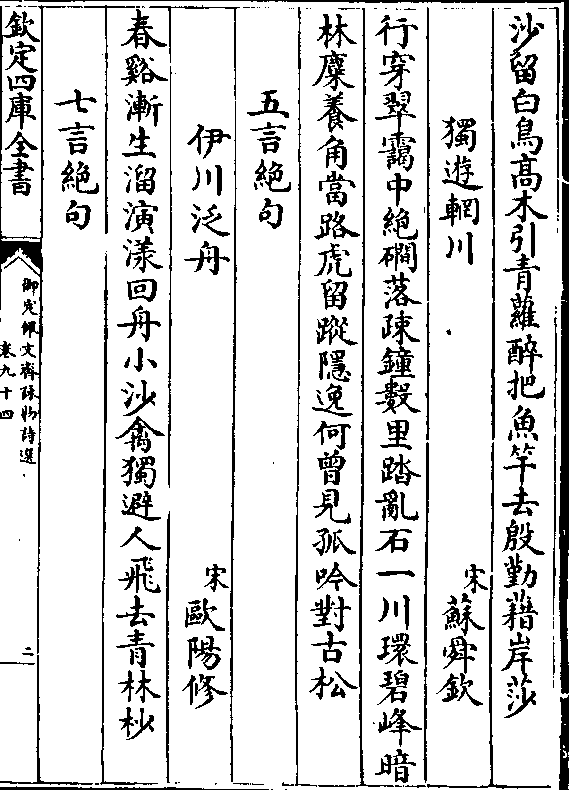 沙留白鳥高木引青蘿醉把魚竿去殷勤藉岸莎
獨遊輞川
宋
蘇舜欽
行穿翠靄中絶磵落疎鐘數里踏亂石一川環碧峰暗
林麋養角當路虎留蹤隱逸何曾見孤吟對古松
五言絶句
伊川泛舟
宋
歐陽修
春谿漸生溜演漾回舟小沙禽獨避人飛去青林杪
七言絶句
欽定四庫全書
御定佩文齋詠物詩選
卷九十四
二